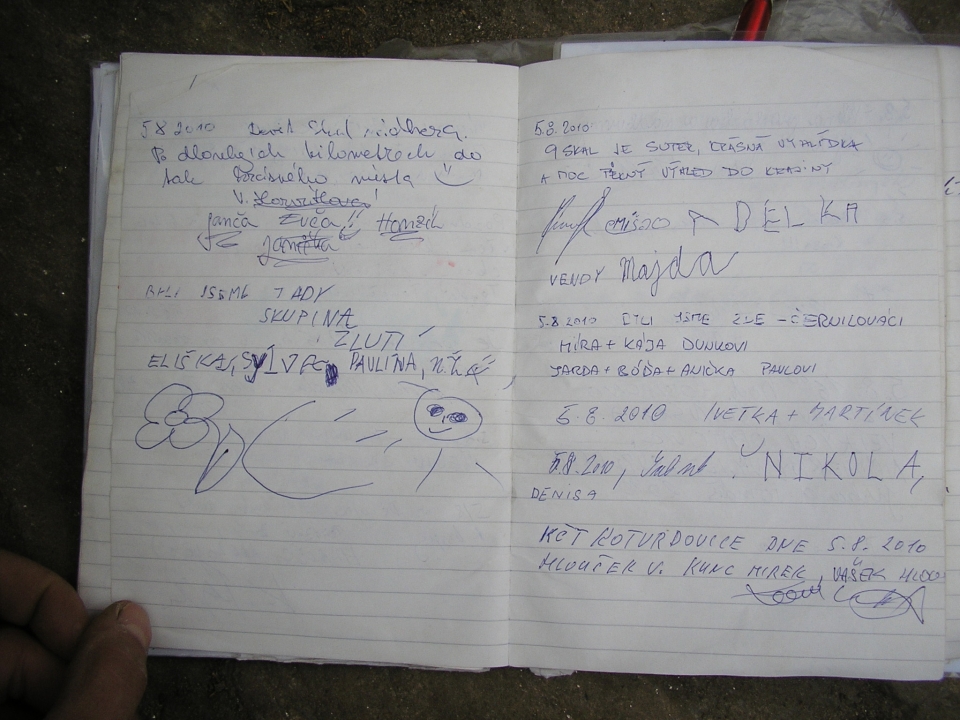 5.8 2010
Po dlouhých kilometrech do
tak krásného místa
Janča Zuča!! Honzík
Janička
BYLI JSEME TADY
SKUPINA
ŽLUTÍ
ELIŠKA, SYLVČA, PAULÍNA,
5.8.2010
9 SKAL JE SUPER, KRÁSNÁ VYHLÍDKA
A MOC PĚKNÝ VÝHLED DO KRAJINY
MÍŠO ADÉLKA
VENDY Majda
5.8 2010 BYLI JSME ZDE - ČERNILOVÁCI
MÍRA + KÁJA DUNKOVI
JARDA + BÓĎA + ANIČKA PAVLOVI
5.8.2010 IVETKA + MARTÍNEK
5.8.2010, NIKOLA,
DENISA
KČT KOTVRDOVICE DNE 5.8.2010
HLOUČEK V. KUNC MIREK, VAŠEK